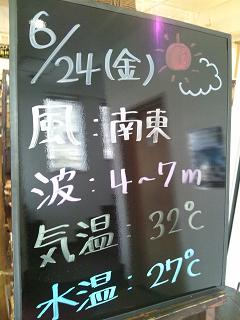 6/24(金)
風：南東
波：4~7m
気温：32℃
水温：27℃